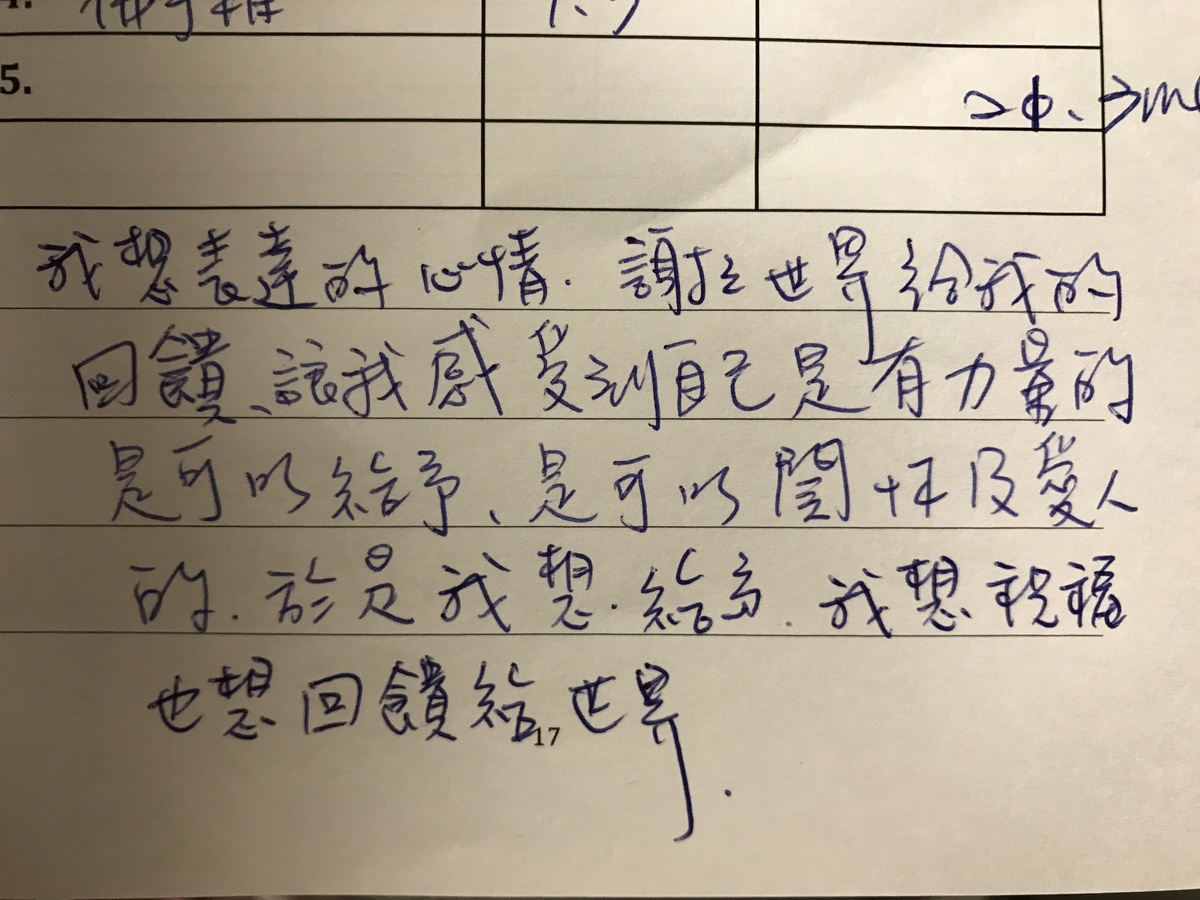 4. 佛手柑
5.
我想表達的心情. 謝於世界給我的
回饋、讓我感受到自己是有力量的
是可以給予、是可以關怀及愛人
的. 於是我想. 給予. 我想祝福
也想回饋給世界.
17